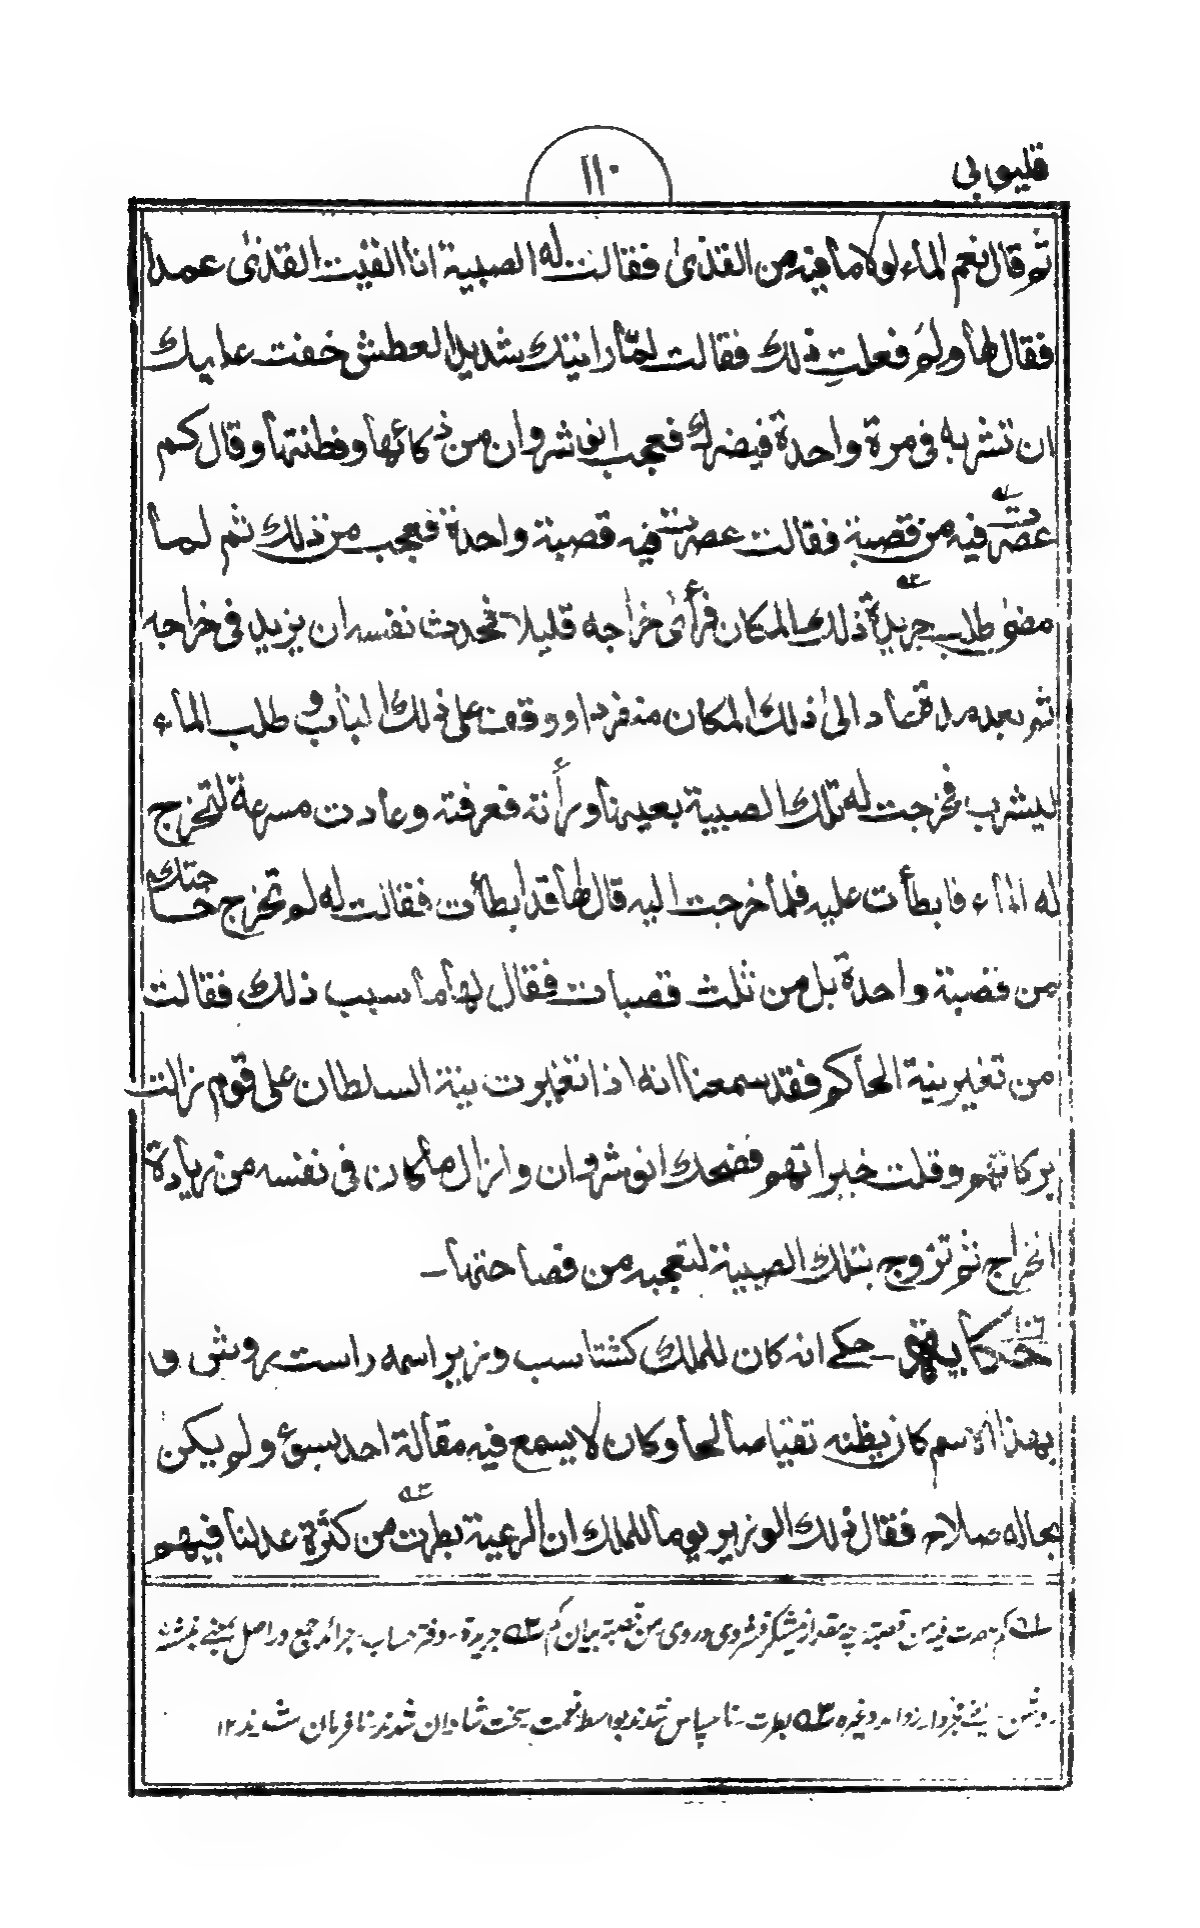 قليوبى
١١٠
ثم قال نعم الماء لولا ما فيه من القذىٰ فقالت له الصبية انا القيت القذىٰ عمدا
فقال لها ولم فعلتِ ذلك فقالت لمّا رايتك شديد العطش خفت عليك
ان تشربه فى مرة واحدة فيضرك فعجب انوشروان من ذكائها وفطنتها وقال كم
عصرت فيه من قصبة فقالت عصرت فيه قصبة واحدة فعجب من ذلك ثم لما
مضىٰ طلب جريدة ذلك المكان فرأىٰ خراجه قليلا فحدث نفسه ان يزيد فى خراجه
ثم بعد مدة عاد الىٰ ذلك المكان منفردا ووقف على ذلك الباب وطلب الماء
ليشرب فخرجت له تلك الصبية بعينها ورأته فعرفته وعادت مسرعة لتخرج
له الماء فابطأت عليه فلما خرجت اليه قال لها قد ابطأت فقالت له لم تخرج حاجتك
من قصبة واحدة بل من ثلث قصبات فقال لها ما سبب ذلك فقالت
من تغير نية الحاكم فقد سمعنا انه اذا تغيرت نية السلطان على قوم زالت
بركاتهم وقلت خيراتهم فضحك انوشروان وازال ما كان فى نفسه من زيادة
الخراج ثم تزوج بتلك الصبية لتعجبه من فصاحتها ـ
حكاية ـ حكى انه كان للملك كشتاسب وزير اسمه راست روش و
بهذا الاسم كان يظنه تقيا صالحا وكان لا يسمع فيه مقالة احد بسوء ولم يكن
بحاله صلاح فقال ذلك الوزير يوما للملك ان الرعية بطرت من كثرة عدلنا فيهم
كم عصرت فيه من قصبة ـ چه مقدار نيشكر فشردى در وى من قصبة بيان كم جريدة ـ دفتر حساب ـ جرائد جمع در اصل بمعنى نبشته
بطرت ـ ناسپاس شدند بواسطه نعمت ـ سخت شادان شدند نافرمان شدند ١٢